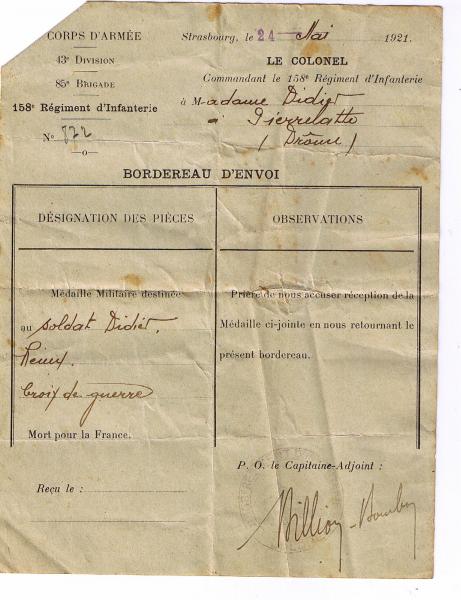 CORPS D'ARMÉE
43e DIVISION
85e BRIGADE
158e Régiment d'Infanterie
No 822
—o—
Strasbourg, le 24 Mai 1921.
LE COLONEL
Commandant le 158e Régiment d'Infanterie
à Madame Didier
à Pierrelatte
(Drôme)
BORDEREAU D'ENVOI
DÉSIGNATION DES PIÈCES
Médaille Militaire destinée
au soldat Didier,
Rémy
Croix de guerre
Mort pour la France.
Reçu le :
OBSERVATIONS
Prière de nous accuser réception de la
Médaille ci-jointe en nous retournant le
présent bordereau.
P. O. le Capitaine-Adjoint :